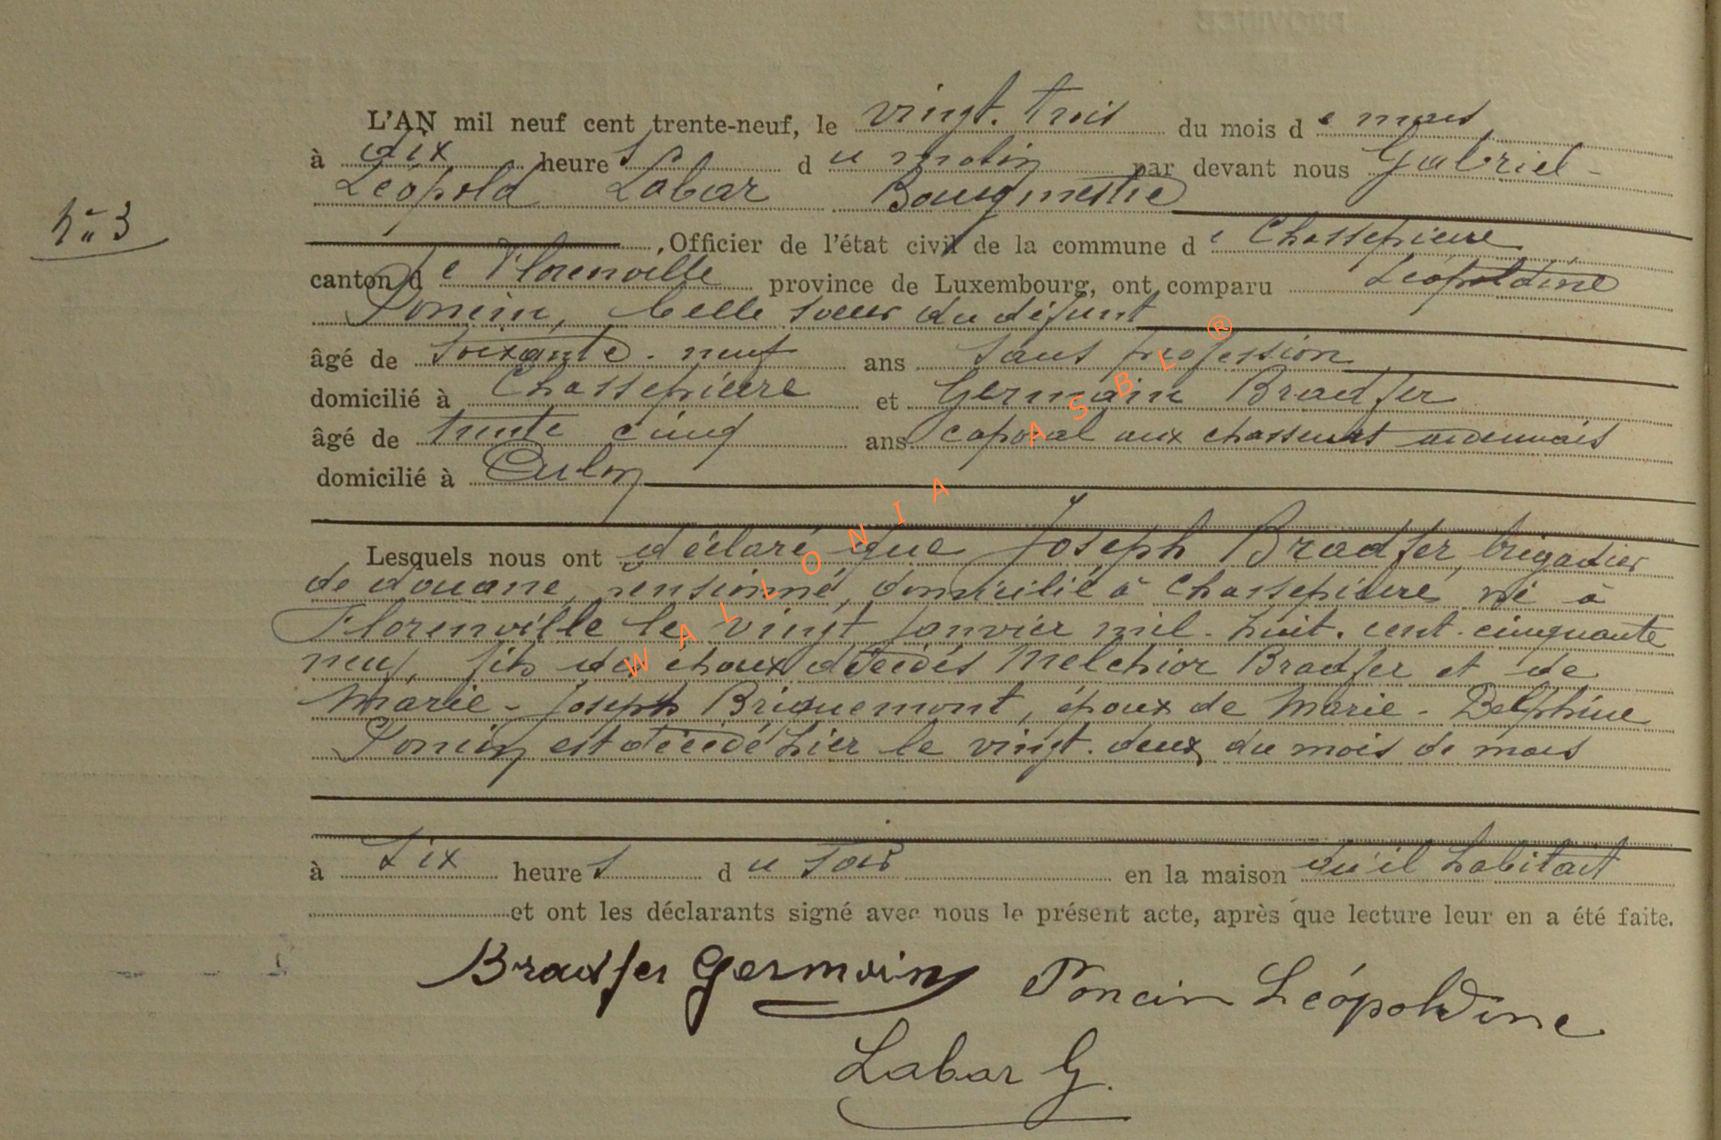 L'AN mil neuf cent trente-neuf, le vingt. trois du mois de mars
à dix heures du matin par devant nous Gabriel-
Léopold Labar Bourgmestre
N° 3
, Officier de l'état civil de la commune de Chassepierre
canton de Florenville province de Luxembourg, ont comparu Léopoldine
Poncin, belle soeur du défunt
âgé de soixante-neuf ans sans profession
domicilié à Chassepierre et Germain Bradfer
âgé de trente cinq ans caporal aux chasseurs ardennais
domicilié à Arlon
Lesquels nous ont déclaré que Joseph Bradfer, brigadier
de douane, pensionné, domicilié à Chassepierre, né à
Florenville le vingt janvier mil-huit-cent-cinquante
neuf, fils des époux décédés Melchior Bradfer et de
Marie-Joseph Briquemont, époux de Marie-Delphine
Poncin est décédé hier le vingt-deux du mois de mars
à six heures du soir en la maison qu'il habitait
et ont les déclarants signé avec nous le présent acte, après que lecture leur en a été faite.
Bradfer Germain Poncin Léopoldine
Labar G.
WALLONIA ASBL ®